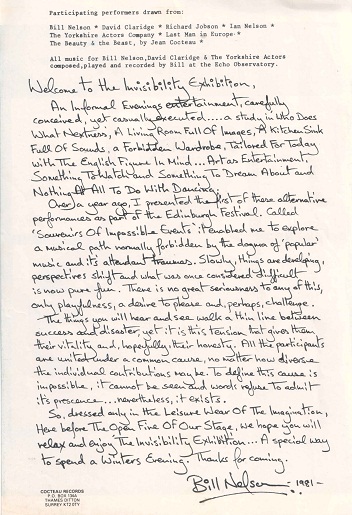 Participating performers drawn from:
Bill Nelson * David Claridge * Richard Jobson * Ian Nelson *
The Yorkshire Actors Company * Last Man in Europe *
The Beauty & the Beast, by Jean Cocteau *
All music for Bill Nelson, David Claridge & The Yorkshire Actors
composed, played and recorded by Bill at the Echo Observatory.
Welcome to the Invisibility Exhibition,
An Informal Evenings entertainment, carefully
conceived, yet casually executed..... a study in Who Does
What Nextness, A Living Room Full Of Images, A Kitchen Sink
Full Of Sounds, a Forbidden Wardrobe, Tailored For Today
with The English Figure In Mind... Art as Entertainment,
Something To Watch and Something To Dream About and
Nothing At All To Do With Dancing.
Over a year ago, I presented the first of these alternative
performances as part of the Edinburgh Festival. Called
'Souvenirs Of Impossible Events' it enabled me to explore
a musical path normally forbidden by the dogma of 'popular'
music and its attendant traumas. Slowly, things are developing,
perspectives shift and what was once considered difficult
is now pure fun. There is no great seriousness to any of this,
only playfulness, a desire to please and, perhaps, challenge.
The things you will hear and see walk a thin line between
success and disaster, yet it is this tension that gives them
their vitality and, hopefully, their honesty. All the participants
are united under a common cause, no matter how diverse
the individual contributions may be. To define this cause is
impossible, it cannot be seen and words refuse to admit
its prescence... nevertheless, it exists.
So, dressed only in the Leisure Wear Of The Imagination,
Here before The Open Fire Of Our Stage, we hope you will
relax and enjoy The Invisibility Exhibition... A special way
to spend a Winters Evening. Thanks for coming.
Bill Nelson - 1981 -
COCTEAU RECORDS
P.O. BOX 134A
THAMES DITTON
SURREY KT7